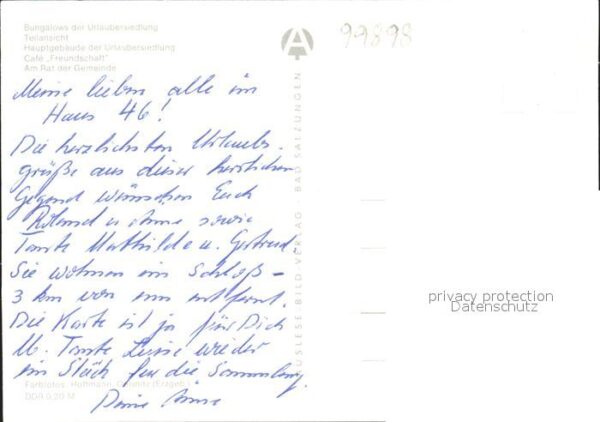 Bungalows der Urlaubersiedlung
Teilansicht
Hauptgebäude der Urlaubersiedlung
Café „Freundschaft"
Am Rat der Gemeinde
99898
Meine lieben alle im
Haus 46!
Die herzlichsten Urlaubs-
grüße aus dieser herrlichen
Gegend wünschen Euch
Roland u. sowie
Tante Mathilde u. Gertrud.
Sie wohnen im Schloß –
3 km von uns entfernt.
Die Karte ist ja für Dich
u. Tante Luise wieder
ein Stück für die Sammlung.
Deine Änne
Farbfotos: Hoffmann, (Erzgeb.)
DDR 0,20 M
AUSLESE BILD-VERLAG - BAD SALZUNGEN
privacy protection
Datenschutz